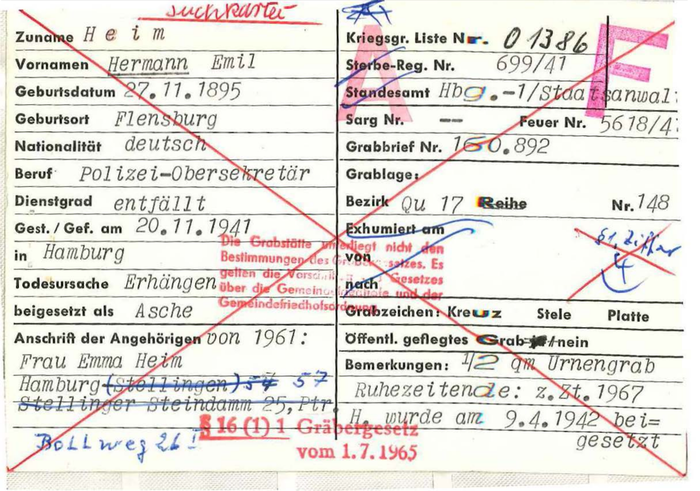 Suchkartei
Zuname Heim
Vornamen Hermann Emil
Geburtsdatum 27.11.1895
Geburtsort Flensburg
Nationalität deutsch
Beruf Polizei-Obersekretär
Dienstgrad entfällt
Gest./Gef. am 20.11.1941
in Hamburg
Todesursache Erhängen
beigesetzt als Asche
Anschrift der Angehörigen von 1961:
Frau Emma Heim
Hamburg (Stellingen) 54 57
Stellinger Steindamm 25, Ptr.
Bollweg 26
A
F
Kriegsgr. Liste Nr. 01386
Sterbe-Reg. Nr. 699/41
Standesamt Hbg.-1/Staatsanwal
Sarg Nr. -- Feuer Nr. 5618/4
Grabbrief Nr. 160.892
Grablage:
Bezirk Qu 17 Reihe Nr. 148
Exhumiert am
von
nach
§1, Ziffer
4
Grabzeichen: Kreuz Stele Platte
Öffentl. gepflegtes Grab ja/nein
Bemerkungen: 1/2 qm Urnengrab
Ruhezeitende: z.Zt. 1967
H. wurde am 9.4.1942 bei=
gesetzt
Die Grabstätte unterliegt nicht den
Bestimmungen des Gräbergesetzes. Es
gelten die Vorschriften des Gesetzes
über die und der
Gemeindefriedhofsordnung.
§ 16 (1) 1 Gräbergesetz
vom 1.7.1965